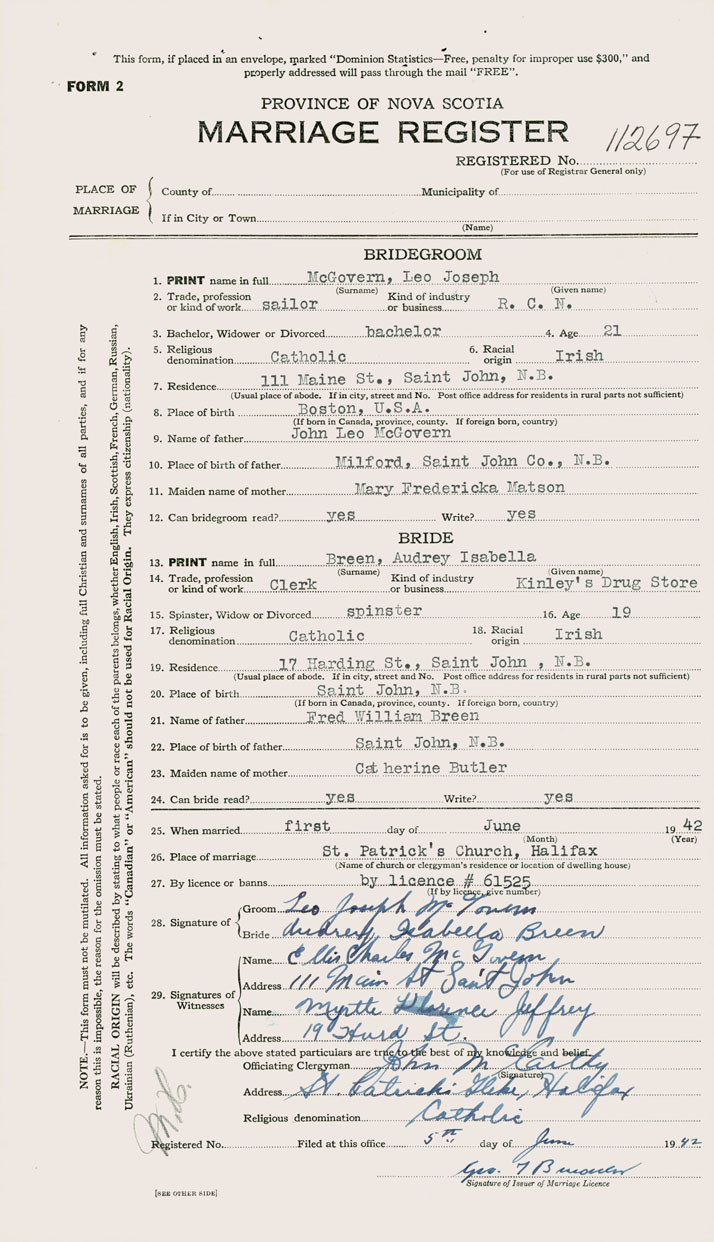 This form, if placed in an envelope, marked "Dominion Statistics—Free, penalty for improper use $300," and
properly addressed will pass through the mail "FREE".
FORM 2
PROVINCE OF NOVA SCOTIA
MARRIAGE REGISTER
112697
REGISTERED No.
(For use of Registrar General only)
PLACE OF MARRIAGE
County of Municipality of
If in City or Town
(Name)
BRIDEGROOM
1. PRINT name in full McGovern, Leo Joseph
(Surname) (Given name)
2. Trade, profession or kind of work sailor Kind of industry or business R. C. N.
3. Bachelor, Widower or Divorced bachelor 4. Age 21
5. Religious denomination Catholic 6. Racial origin Irish
7. Residence 111 Maine St., Saint John, N.B.
(Usual place of abode. If in city, street and No. Post office address for residents in rural parts not sufficient)
8. Place of birth Boston, U.S.A.
(If born in Canada, province, county. If foreign born, country)
9. Name of father John Leo McGovern
10. Place of birth of father Milford, Saint John Co., N.B.
11. Maiden name of mother Mary Fredericka Matson
12. Can bridegroom read? yes Write? yes
BRIDE
13. PRINT name in full Breen, Audrey Isabella
(Surname) (Given name)
14. Trade, profession or kind of work Clerk Kind of industry or business Kinley's Drug Store
15. Spinster, Widow or Divorced spinster 16. Age 19
17. Religious denomination Catholic 18. Racial origin Irish
19. Residence 17 Harding St., Saint John , N.B.
(Usual place of abode. If in city, street and No. Post office address for residents in rural parts not sufficient)
20. Place of birth Saint John, N.B.
(If born in Canada, province, county. If foreign born, country)
21. Name of father Fred William Breen
22. Place of birth of father Saint John, N.B.
23. Maiden name of mother Catherine Butler
24. Can bride read? yes Write? yes
25. When married first day of June 19 42
(Month) (Year)
26. Place of marriage St. Patrick's Church, Halifax
(Name of church or clergyman's residence or location of dwelling house)
27. By licence or banns by licence # 61525
(If by licence, give number)
28. Signature of
Groom Leo Joseph McGovern
Bride Audrey Isabella Breen
29. Signatures of Witnesses
Name Ellis Charles McGovern
Address 111 Main St Saint John
Name Myrtle Jeffrey
Address 19 Hurd St.
I certify the above stated particulars are true to the best of my knowledge and belief.
Officiating Clergyman John McCarthy
(Signature)
Address St. Patrick's Glebe, Halifax
Religious denomination Catholic
Registered No. Filed at this office 5th day of June 19 42
Signature of Issuer of Marriage Licence
[SEE OTHER SIDE]
NOTE.—This form must not be mutilated. All information asked for is to be given, including full Christian and surnames of all parties, and if for any
reason this is impossible, the reason for the omission must be stated.
RACIAL ORIGIN will be described by stating to what people or race each of the parents belongs, whether English, Irish, Scottish, French, German, Russian,
Ukrainian (Ruthenian), etc. The words "Canadian" or "American" should not be used for Racial Origin. They express citizenship (nationality).